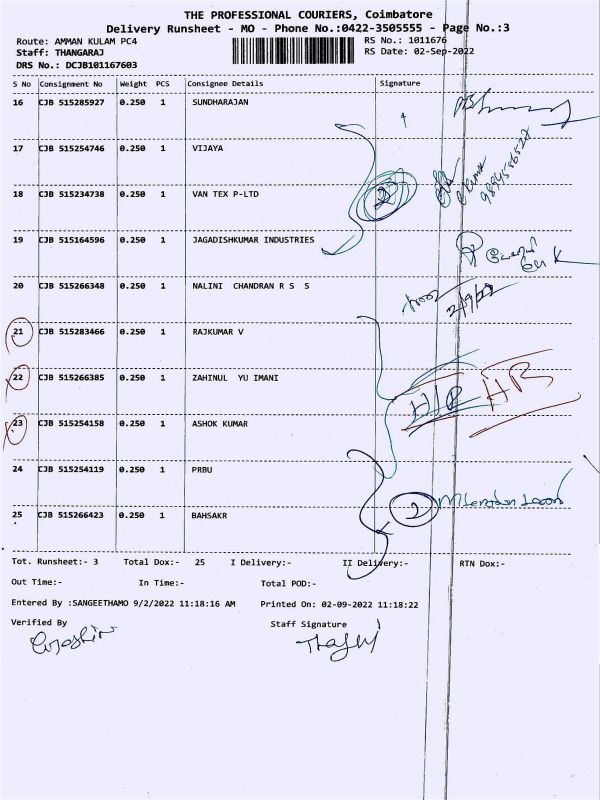 THE PROFESSIONAL COURIERS, Coimbatore
Delivery Runsheet - MO - Phone No.:0422-3505555 - Page No.:3
Route: AMMAN KULAM PC4 RS No.: 1011676
Staff: THANGARAJ RS Date: 02-Sep-2022
DRS No.: DCJB101167603
S No Consignment No Weight PCS Consignee Details Signature
16 CJB 515285927 0.250 1 SUNDHARAJAN
17 CJB 515254746 0.250 1 VIJAYA
18 CJB 515234738 0.250 1 VAN TEX P-LTD 2
19 CJB 515164596 0.250 1 JAGADISHKUMAR INDUSTRIES
20 CJB 515266348 0.250 1 NALINI CHANDRAN R S S
2/9/22
21 CJB 515283466 0.250 1 RAJKUMAR V
22 CJB 515266385 0.250 1 ZAHINUL YU IMANI
23 CJB 515254158 0.250 1 ASHOK KUMAR
24 CJB 515254119 0.250 1 PRBU
2
25 CJB 515266423 0.250 1 BAHSAKR
Tot. Runsheet:- 3 Total Dox:- 25 I Delivery:- II Delivery:- RTN Dox:-
Out Time:- In Time:- Total POD:-
Entered By :SANGEETHAMO 9/2/2022 11:18:16 AM Printed On: 02-09-2022 11:18:22
Verified By Staff Signature